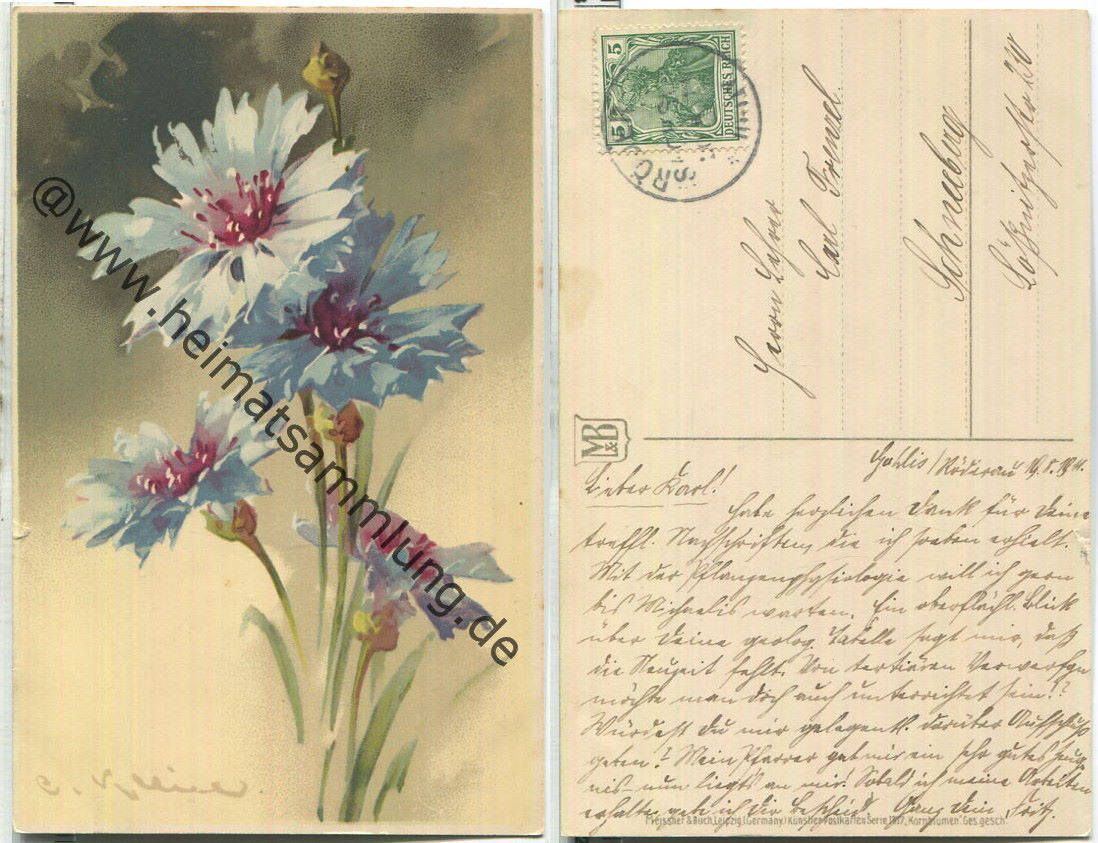 @www.heimatsammlung.de
C. Klein
DEUTSCHES REICH
5
5
Herrn Lehrer
Carl
Schneeberg
Lößnitzerstr. 20
M&B
Gohlis/Röderau 19.5.1911.
Lieber Karl!
Habe herzlichen Dank für Deine
treffl. Nachschriften, die ich soeben erhielt.
Mit der Pflanzenphysiologie will ich gern
bis Michaelis warten. Ein oberflächl. Blick
über Deine geolog. Tabelle sagt mir, daß
die Neuzeit fehlt. Von tertiären Verwerfgn
möchte man doch auch unterrichtet sein!?
Würdest Du mir gelegentl. darüber Aufschluß
geben? Mein Pfarrer gab mir ein sehr gutes Zeug-
nis - nun liegts an mir! Sobald ich meine Arbeiten
erhalten gebe ich Dir Bescheid. Ganz Dein Fritz.
Meissner & Buch, Leipzig (Germany) Künstler-Postkarten Serie 1817, "Kornblumen". Ges. gesch.